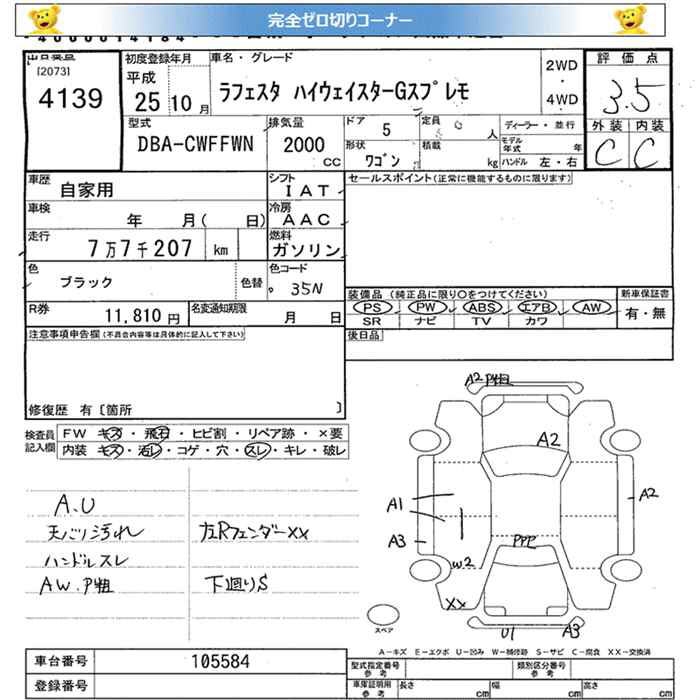 完全ゼロ切りコーナー
出品番号
[2073]
4139
初度登録年月
平成
25年10月
車名・グレード
ラフェスタ ハイウェイスターGスプレモ
2WD
・
4WD
評価点
3.5
外装 内装
C C
型式
DBA-CWFFWN
排気量
2000
CC
ドア
5
定員
人
形状
ワゴン
積載
kg
ディーラー・並行
モデル年式
年
ハンドル 左・右
車歴
自家用
シフト
IAT
セールスポイント(正常に機能するものに限ります)
車検
年 月( 日)
冷房
AAC
走行
7万7千207 km
燃料
ガソリン
色
ブラック
色替
色コード
35N
装備品 (純正品に限り○をつけてください)
新車保証書
PS PW ABS エアB AW
有・無
SR ナビ TV カワ
R券
11,810円
名変通知期限
月 日
後日品
注意事項申告欄(不具合内容等は具体的に記入して下さい)
修復歴 有〔箇所 〕
検査員記入欄
FW キズ・飛石・ヒビ割・リペア跡・×要
内装 キズ・汚レ・コゲ・穴・スレ・キレ・破レ
A.U
天バリ汚れ
左Rフェンダーxx
ハンドルスレ
AW.P粗
下廻りS
A2 P粗
A2
A1
A2
A3
PPP
W2
XX
U1
A3
スペア
A-キズ E-エクボ U-凹み W-補修跡 S-サビ C-腐食 XX-交換済
車台番号
105584
型式指定番号
参考
類別区分番号
参考
登録番号
車庫証明用
参考
長さ
cm
幅
cm
高さ
cm